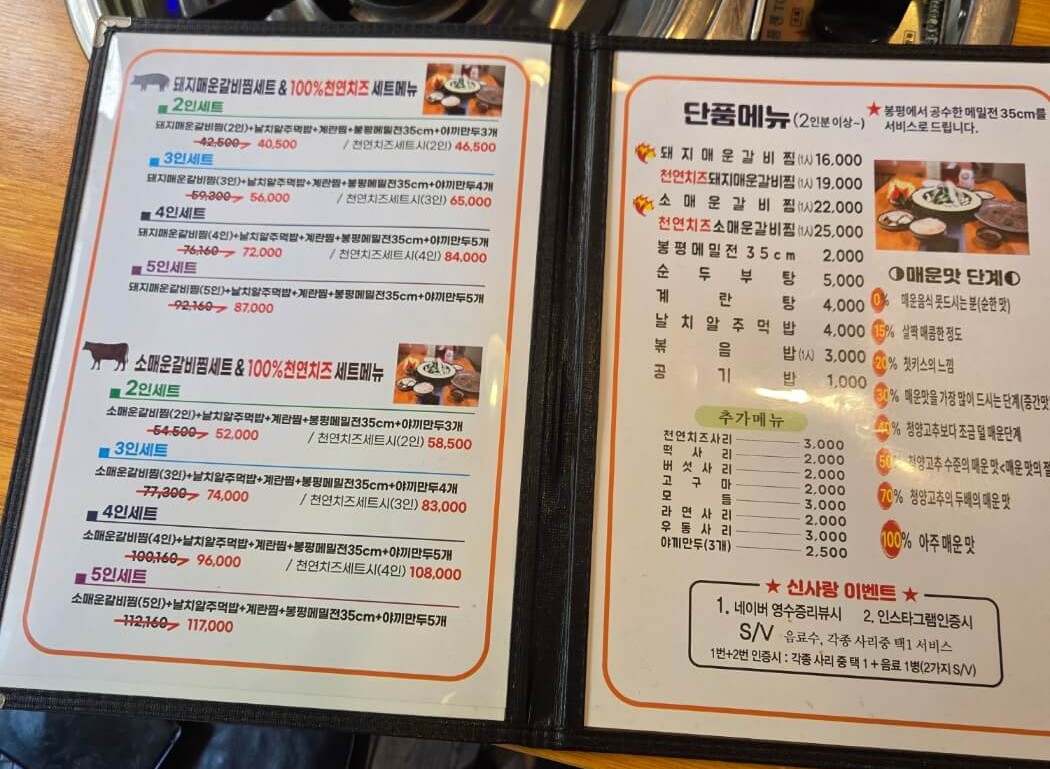 돼지매운갈비찜세트 & 100%천연치즈 세트메뉴
2인세트
돼지매운갈비찜(2인)+날치알주먹밥+계란찜+봉평메밀전35cm+야끼만두3개
42,500 40,500 / 천연치즈세트시(2인) 46,500
3인세트
돼지매운갈비찜(3인)+날치알주먹밥+계란찜+봉평메밀전35cm+야끼만두4개
59,300 56,000 / 천연치즈세트시(3인) 65,000
4인세트
돼지매운갈비찜(4인)+날치알주먹밥+계란찜+봉평메밀전35cm+야끼만두5개
76,160 72,000 / 천연치즈세트시(4인) 84,000
5인세트
돼지매운갈비찜(5인)+날치알주먹밥+계란찜+봉평메밀전35cm+야끼만두5개
92,160 87,000
소매운갈비찜세트 & 100%천연치즈 세트메뉴
2인세트
소매운갈비찜(2인)+날치알주먹밥+계란찜+봉평메밀전35cm+야끼만두3개
54,500 52,000 / 천연치즈세트시(2인) 58,500
3인세트
소매운갈비찜(3인)+날치알주먹밥+계란찜+봉평메밀전35cm+야끼만두4개
77,300 74,000 / 천연치즈세트시(3인) 83,000
4인세트
소매운갈비찜(4인)+날치알주먹밥+계란찜+봉평메밀전35cm+야끼만두5개
100,160 96,000 / 천연치즈세트시(4인) 108,000
5인세트
소매운갈비찜(5인)+날치알주먹밥+계란찜+봉평메밀전35cm+야끼만두5개
112,160 117,000
단품메뉴 (2인분 이상~)
★ 봉평에서 공수한 메밀전 35cm를
서비스로 드립니다.
돼지매운갈비찜(1人) 16,000
천연치즈돼지매운갈비찜(1人) 19,000
소매운갈비찜(1人) 22,000
천연치즈소매운갈비찜(1人) 25,000
봉평메밀전 35cm 2,000
순두부탕 5,000
계란탕 4,000
날치알주먹밥 4,000
볶음밥(1人) 3,000
공기밥 1,000
추가메뉴
천연치즈사리 3,000
떡사리 2,000
버섯사리 2,000
고구마 2,000
모듬 3,000
라면사리 2,000
우동사리 3,000
야끼만두(3개) 2,500
매운맛 단계
0% 매운음식 못드시는 분(순한 맛)
15% 살짝 매콤한 정도
20% 첫키스의 느낌
30% 매운맛을 가장 많이 드시는 단계(중간맛
청양고추보다 조금 덜 매운단계
50 청양고추 수준의 매운 맛<매운 맛의
70% 청양고추의 두배의 매운 맛
100% 아주 매운 맛
★ 신사랑 이벤트 ★
1. 네이버 영수증리뷰시 2. 인스타그램인증시
S/V 음료수, 각종 사리중 택1 서비스
1번+2번 인증시 : 각종 사리 중 택 1 + 음료 1병(2가지 S/V)